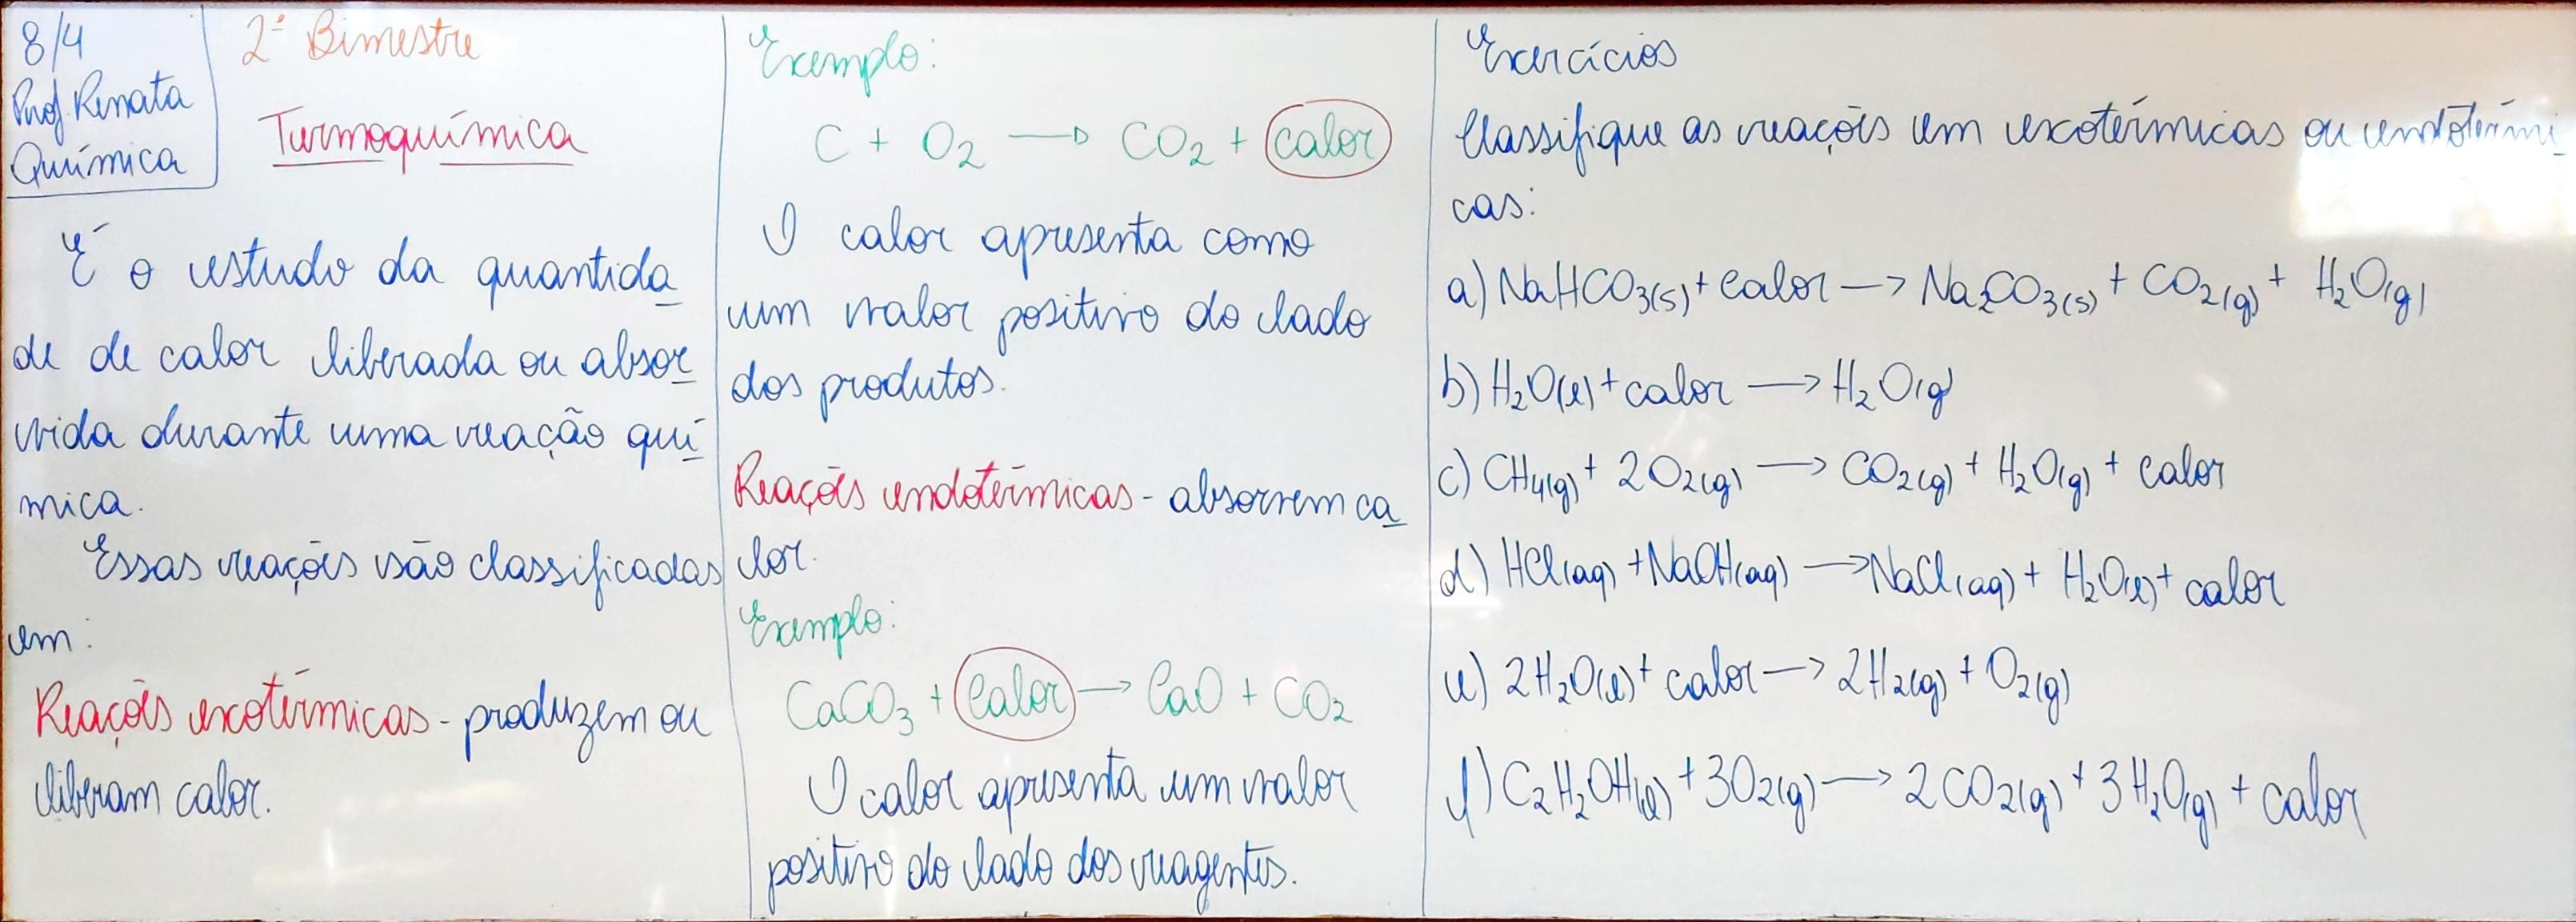 8/4
Prof. Renata
Química
2º Bimestre
Termoquímica
É o estudo da quantida
de de calor liberada ou absor
vida durante uma reação quí
mica.
Essas reações são classificadas
em:
Reações exotérmicas - produzem ou
liberam calor.
Exemplo:
C + O₂ → CO₂ + calor
O calor apresenta como
um valor positivo do lado
dos produtos.
Reações endotérmicas - absorvem ca
lor.
Exemplo:
CaCO₃ + Calor → CaO + CO₂
O calor apresenta um valor
positivo do lado dos reagentes.
Exercícios
Classifique as reações em exotérmicas ou endotérmi-
cas:
a) NaHCO₃(s) + Calor → Na₂CO₃(s) + CO₂(g) + H₂O(g)
b) H₂O(l) + calor → H₂O(g)
c) CH₄(g) + 2O₂(g) → CO₂(g) + H₂O(g) + calor
d) HCl(aq) + NaOH(aq) → NaCl(aq) + H₂O(l) + calor
e) 2H₂O(l) + calor → 2H₂(g) + O₂(g)
f) C₂H₂OH(l) + 3O₂(g) → 2CO₂(g) + 3H₂O(g) + calor